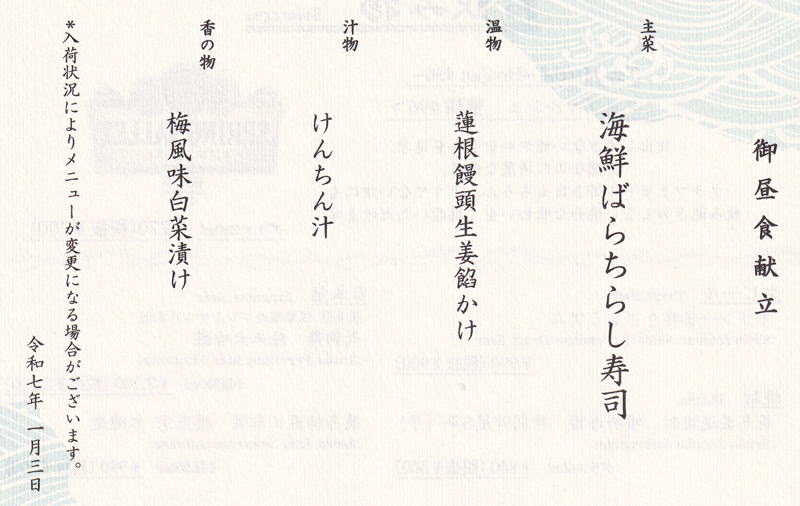 御昼食献立
主菜
海鮮ばらちらし寿司
温物
蓮根饅頭生姜餡かけ
汁物
けんちん汁
香の物
梅風味白菜漬け
*入荷状況によりメニューが変更になる場合がございます。
令和七年 一月三日